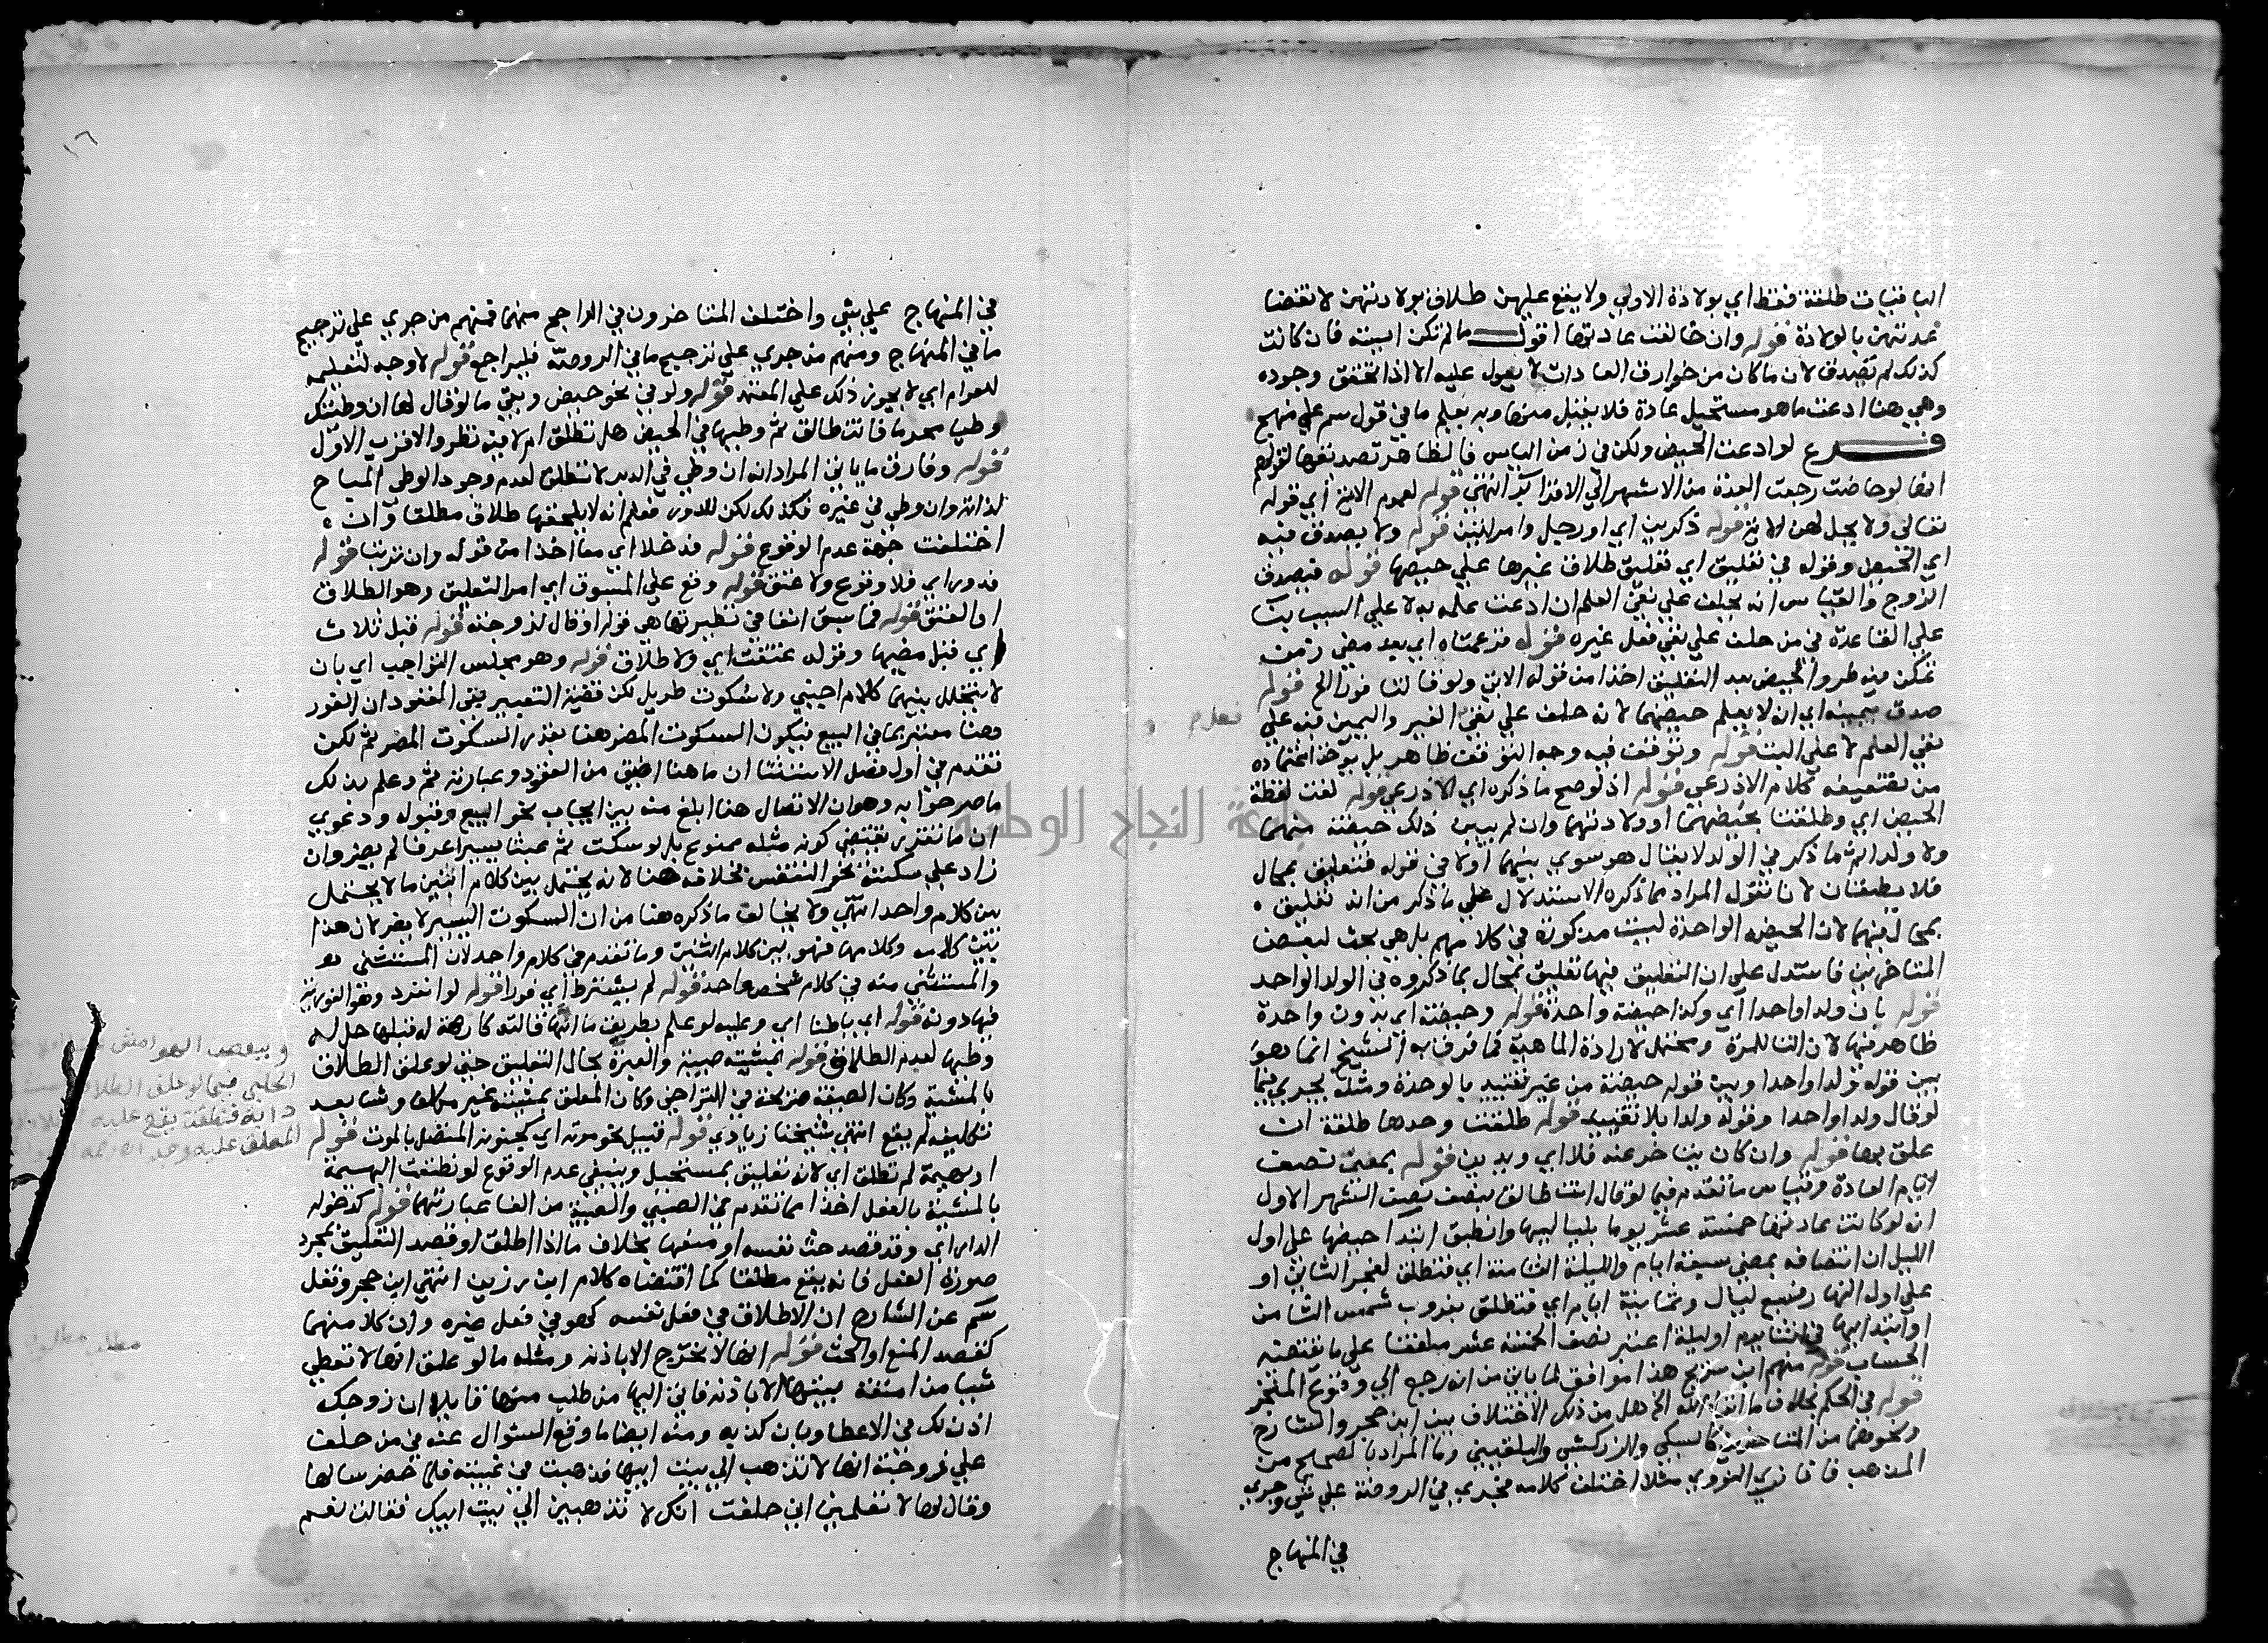 الباقيات طلقة فقط اي بولادة الاولي ولا يقع عليهن طلاق بولادتهن لانقضا
عدتهن بالولادة قوله وان خالفت عادتها اقول ما لم تكن ايسة فان كانت
كذلك لم تصدق لان ما كان من خوارق العادات لا يعول عليه الا اذا تحقق وجوده
وهي هنا ادعت ما هو مستحيل عادة فلا يقبل منها وبه يعلم ما في قول سم علي منهج
فرع لو ادعت الحيض ولكن في زمن الياس فالظاهر تصديقها لقولهم
انها لو حاضت رجعت العدة من الاشهر الي الاقرا انتهي قوله لعموم الاية اي قوله
تعالي ولا يحل لهن الاية قوله ذكرين اي او رجل وامراتين قوله ولا يصدق فيه
اي الحيض وقوله في تعليق اي تعليق طلاق غيرها علي حيضها قوله فيصدق
الزوج والقياس انه يحلف علي نفي العلم ان ادعت علمه به لا علي السبب بتا
علي القاعدة في من حلف علي نفي فعل غيره قوله فزعمتاه اي بعد مضي زمن
يمكن فيه طرو الحيض بعد التعليق اخذا من قوله الاتي ولو قالتا فورا الخ قوله
صدق بيمينه اي انه لا يعلم حيضهما لانه حلف علي نفي الغير واليمين فيه علي
نفي العلم لا علي البت قوله وتوقفت فيه وجه التوقف ظاهر بل يوخذ اعتماده
من تضعيفه كلام الاذرعي قوله اذ لو صح ما ذكره اي الاذرعي قوله لغت لفظة
الحيض اي وطلقتا بحيضهما او ولادتهما وان لم يبين ذلك حيضة منهما
ولا ولد اثم ما ذكر في الولد لا يقال هو سوي بينهما اولا في قوله فتعليق بمحال
فلا يطلقان لانا نقول المراد بما ذكره الاستدلال علي ما ذكر من انه تعليق
بمحال فيهما لان الحيضة الواحدة ليست مذكورة في كلامهم بل هي بحث لبعض
المتاخرين فاستدل علي ان التعليق فيها تعليق بمحال بما ذكروه في الولد الواحد
قوله بان ولدا واحدا اي وكذا حيضة واحدة قوله وحيضة اي بدون واحدة
ظاهر فيها لان التا للمرة ومحتمل لارادة الماهية فما فرق به الشيخ انما هو
بين قوله ولدا واحدا وبين قوله حيضة من غير تقييد بالوحدة ومثله يجري فيما
لو قال ولدا واحدا وقوله ولدا بلا تقييد قوله طلقت وحدها طلقة ان
علق بها قوله وان كان بتا خر عنه فلا اي ويدين قوله بمضي نصف
لايام العادة وقياس ما تقدم فيما لو قال انت طالق بنصف بنصف الشهر الاول
انه لو كانت عادتها خمسة عشر يوما بلياليها وانطبق ابتدا حيضها علي اول
الليل ان انتصافه بمضي سبعة ايام والليلة الثامنة اي فتطلق لفجر الثامن او
علي اول النهار فسبع ليال وثمانية ايام اي فتطلق بغروب شمس الثامن
او ابتداها في اثنا يوم او ليلة اعتبر نصف الخمسة عشر ملفقا علي ما يقتضيه
الحساب قوله منهم ابن سريج هذا موافق لما ياتي من انه رجع الي وقوع المنجز
قوله في الحكم بخلاف ما الخ هل من ذلك الاختلاف بين ابن حجر والشارح
ونحوهما من المتاخرين كالسبكي والزركشي والبلقيني وما المراد بالصحيح من
المذهب فاقاويل النووي مثلا اختلف كلامه فجري في الروضة علي شي وجري
في المنهاج
في المنهاج علي شي واختلف المتاخرون في الراجح منهما فمنهم من جري علي ترجيح
ما في المنهاج ومنهم من جري علي ترجيح ما في الروضة فليراجع قوله لا وجه لتعليمه
للعوام اي لا يجوز ذلك علي المعتمد قوله ولو في نحو حيض وبقي ما لو قال لها ان وطئتك
وطيا محرما فانت طالق ثم وطيها في الحيض هل تطلق ام لا فيه نظر والاقرب الاول
قوله وفارق ما ياتي المراد انه ان وطي في الدبر لا تطلق لعدم وجود الوطي المباح
لذاته وان وطي في غيره فكذلك لكن للدور فعلم انه لا يلحقها طلاق مطلقا وان
اختلفت جهة عدم الوقوع قوله فدخلا اي معا اخذا من قوله وان ترتبا قوله
فدور اي فلا وقوع ولا عتق قوله وقع علي المسبوق اي امر التعليق وهو الطلاق
او العتق قوله فما سبق انفا في نظيرتها هي قوله او قال لزوجته قوله قبل ثلاث
اي قبل مضيها وقوله عتقت اي ولا طلاق قوله وهو مجلس التواجب اي بان
لا يتخلل بينهما كلام اجنبي ولا سكوت طويل لكن قضية التعبير في المفقود ان الفور
هنا معتبر بما في البيع فيكون السكوت المضر هنا بقدر السكوت المضر ثم لكن
تقدم في اول فصل الاستثنا ان ما هنا اضيق من العقود وعبارته ثم وعلم بذلك
ما صرحوا به وهو ان الاتصال هنا ابلغ منه بين ايجاب نحو البيع وقبوله ودعوي
ان ما تقرر يقتضي كونه مثله ممنوع بل لو سكت ثم عبثا يسيرا عرفا لم يضر وان
زاد علي سكتة نحو التنفس بخلافه هنا لانه يحتمل بين كلام اثنين ما لا يحتمل
بين كلام واحد انتهي ولا يخالف ما ذكره هنا من ان السكوت اليسير لا يضر لان هذا
بين كلامه وكلامها فهو بين كلام اثنين وما تقدم في كلام واحد لان المستثني
والمستثني منه في كلام شخص واحد قوله لم يشترط اي فورا قوله لو انفرد
فيها دونه قوله اي باطنا اي وعليه لو علم بطريق ما انها قالته كارهة له فبلها حل له
وطيها لعدم الطلاق قوله بمشيئته صبية والعبرة بحال التعليق حتي لو علق الطلاق
بالمشية وكان الصيغة صريحة في التراخي وكان المعلق بمشيئته غير مكلف وشا بعد
تكليفه لم يقع انتهي شيخنا زيادي قوله قبيل نحو موته اي كجنونه المتصل بالموت قوله
او بهيمة لم تطلق اي لانه تعليق بمستحيل وينبغي عدم الوقوع لو نطقت البهيمة
بالمشية بالفعل اخذا مما تقدم في الصبي والصبية من الغا عبارتهما قوله كدخوله
الدار اي وقد قصد حث نفسه او منعها بخلاف ما اذا اطلق او قصد التعليق بمجرد
صورة الفعل فانه يقع مطلقا كما اقتضاه كلام ابن رزين انتهي ابن حجر ونقل
سم عن الشارح ان الاطلاق في فعل نفسه كهو في فعل غيره وان كلا منهما
كقصد المنع او الحث قوله انها لا تخرج الا باذنه ومثله ما لو علق انها لا تعطي
شيا من امتعة بيتها الا باذنه فاتي اليها من طلب منها قايلا ان زوجك
اذن لك في الاعطا وبان كذبه ومنه ايضا ما وقع السوال عنه في من حلف
علي زوجته انها لا تذهب الي بيت ابيها فذهبت في غيبته فلما حضر سالها
وقال لها لا تعلمين اني حلفت انك لا تذهبين الي بيت ابيك فقالت نعم
وببعض الهوامش
الحلبي فيما لو علق الطلاق
دابة فنطقت يقع عليه
المعلق عليه وجد
جامعة النجاح الوطنية